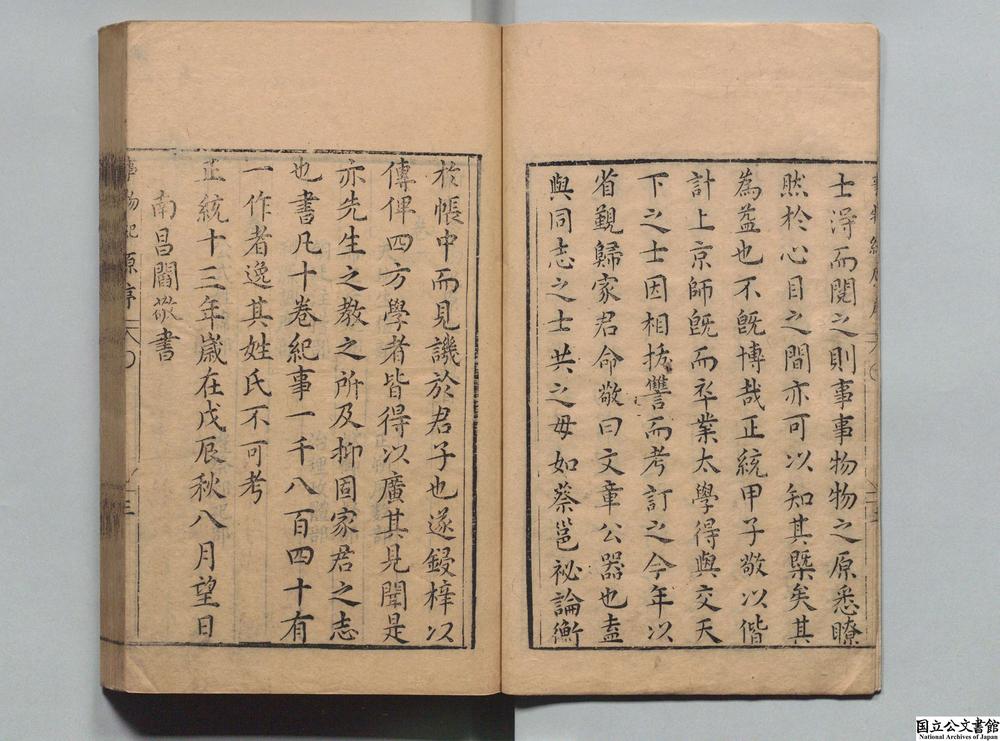 士得而閱之則事事物物之原悉瞭
然於心目之間亦可以知其槩矣其
為益也不既博哉正統甲子敬以偕
計上京師既而卒業太學得與交天
下之士因相挍讐而考訂之今年以
省覲歸家君命敬曰文章公器也盍
與同志之士共之毋如蔡邕祕論衡
於帳中而見譏於君子也遂鋟梓以
傳俾四方學者皆得以廣其見聞是
亦先生之教之所及抑固家君之志
也書凡十卷紀事一千八百四十有
一作者逸其姓氏不可考
正統十三年歲在戊辰秋八月望日
南昌閻敬書
事物紀原序
三
国立公文書館
National Archives of Japan